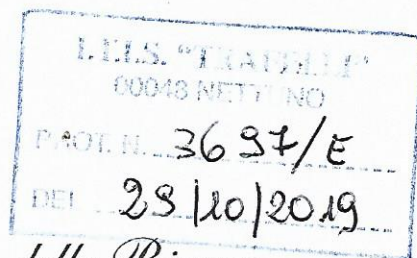 I.T.I.S. "TRAFELLI"
00048 NETTUNO
PROT. N. 3697/E
DEL 29|10|2019